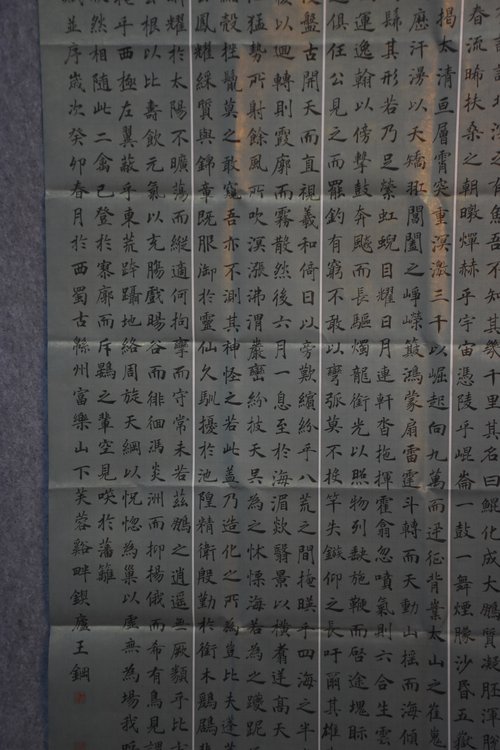 其幾千里其名曰鯤化成大鵬質凝胚渾脫
春流晞扶桑之朝暾燀赫乎宇宙憑陵乎崐崙一鼓一舞煙朦沙昏五嶽
揭太清亘層霄突重溟激三千以崛起向九萬而迅征背嶪太山之崔嵬
歷汗漫以夭矯羾閶闔之崢嶸簸鴻蒙扇雷霆斗轉而天動山搖而海傾
髴其形若乃足縈虹蜺目耀日月連軒沓拖揮霍翕忽噴氣則六合生雲
運逸翰以傍擊鼓奔飈而長驅燭龍銜光以照物列缺施鞭而啓途塊眎
之俱任公見之而罷釣有窮不敢以彎弧莫不投竿失鏃仰之長吁爾其雄
盤古開天而直視羲和倚日以旁歎繽紛乎八荒之間掩映乎四海之半
後以迴轉則霞廓而霧散然後六月一息至於海湄欻翳景以橫翥逆高天
猛勢所射餘風所吹溟漲沸渭巖巒紛披天吳為之怵慄海若為之躨跜
縮殼挫鬣莫之敢窺吾亦不測其神怪之若此蓋乃造化之所為豈比夫蓬萊
鳳耀綵質與錦章既服御於靈仙久馴擾於池隍精衛殷勤於銜木鶢鶋
耀於太陽不曠蕩而縱適何拘攣而守常未若茲鵬之逍遙無厥類乎比方
根以比壽飲元氣以充腸戲暘谷而徘徊馮炎洲而抑揚俄而希有鳥見謂
掩乎西極左翼蔽乎東荒跨躡地絡周旋天綱以恍惚為巢以虛無為場我呼
然相隨此二禽已登於寥廓而斥鷃之輩空見笑於藩籬
賦並序歲次癸卯春月於西蜀古緜州富樂山下芙蓉谿畔鍥廬王鋼